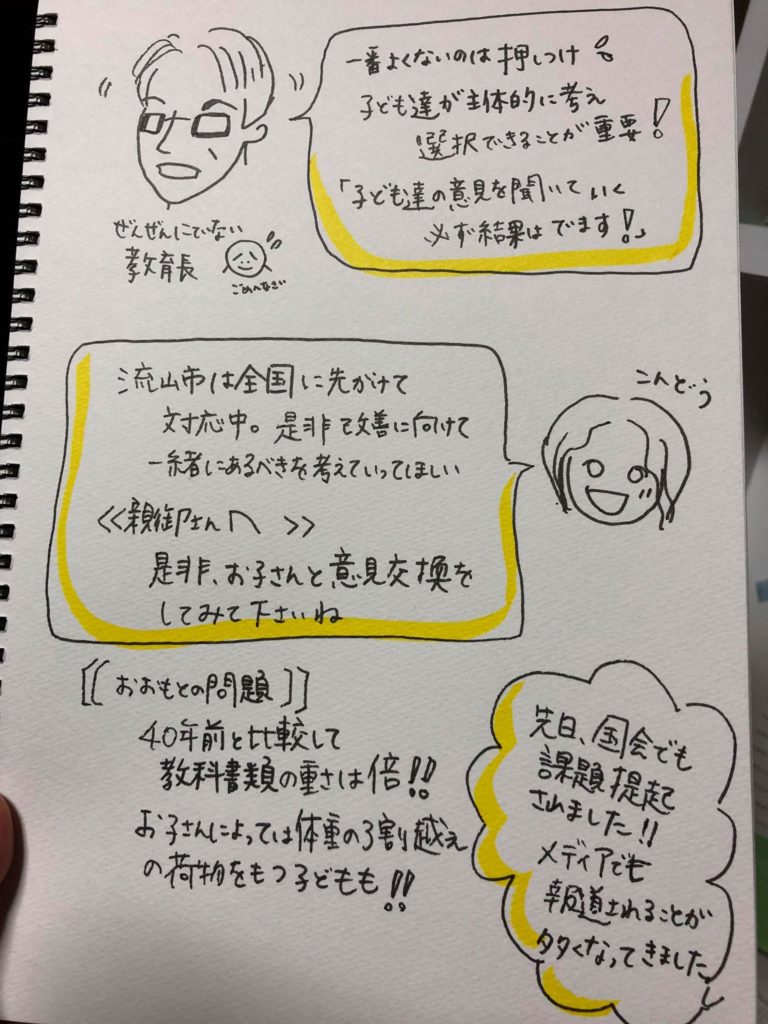 一番よくないのは押しつけ
子ども達が主体的に考え
選択できることが重要!
「子ども達の意見を聞いていく
必ず結果はでます!」
ぜんぜんにてない
教育長
ごめんなさい
流山市は全国に先がけて
対応中。是非で改善に向けて
一緒にあるべきを考えていってほしい
こんどう
<<親御さんへ>>
是非、お子さんと意見交換を
してみて下さいね
[[おおもとの問題]]
40年前と比較して
教科書類の重さは倍!!
お子さんによっては体重の3割越え
の荷物をもつ子どもも!!
先日、国会でも
課題提起
されました!!
メディアでも
報道されることが
多くなってきました